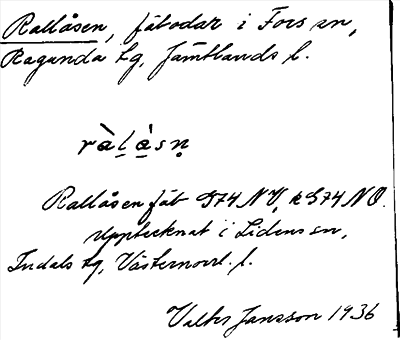 Rallåsen, fäbodar i Fors sn,
Ragunda tg, Jämtlands l.
Rallåsen fäb G74 NV, k G74 NO.
Upptecknat i Lidens sn,
Indals tg, Västernorrl. l.
Valter Jansson 1936